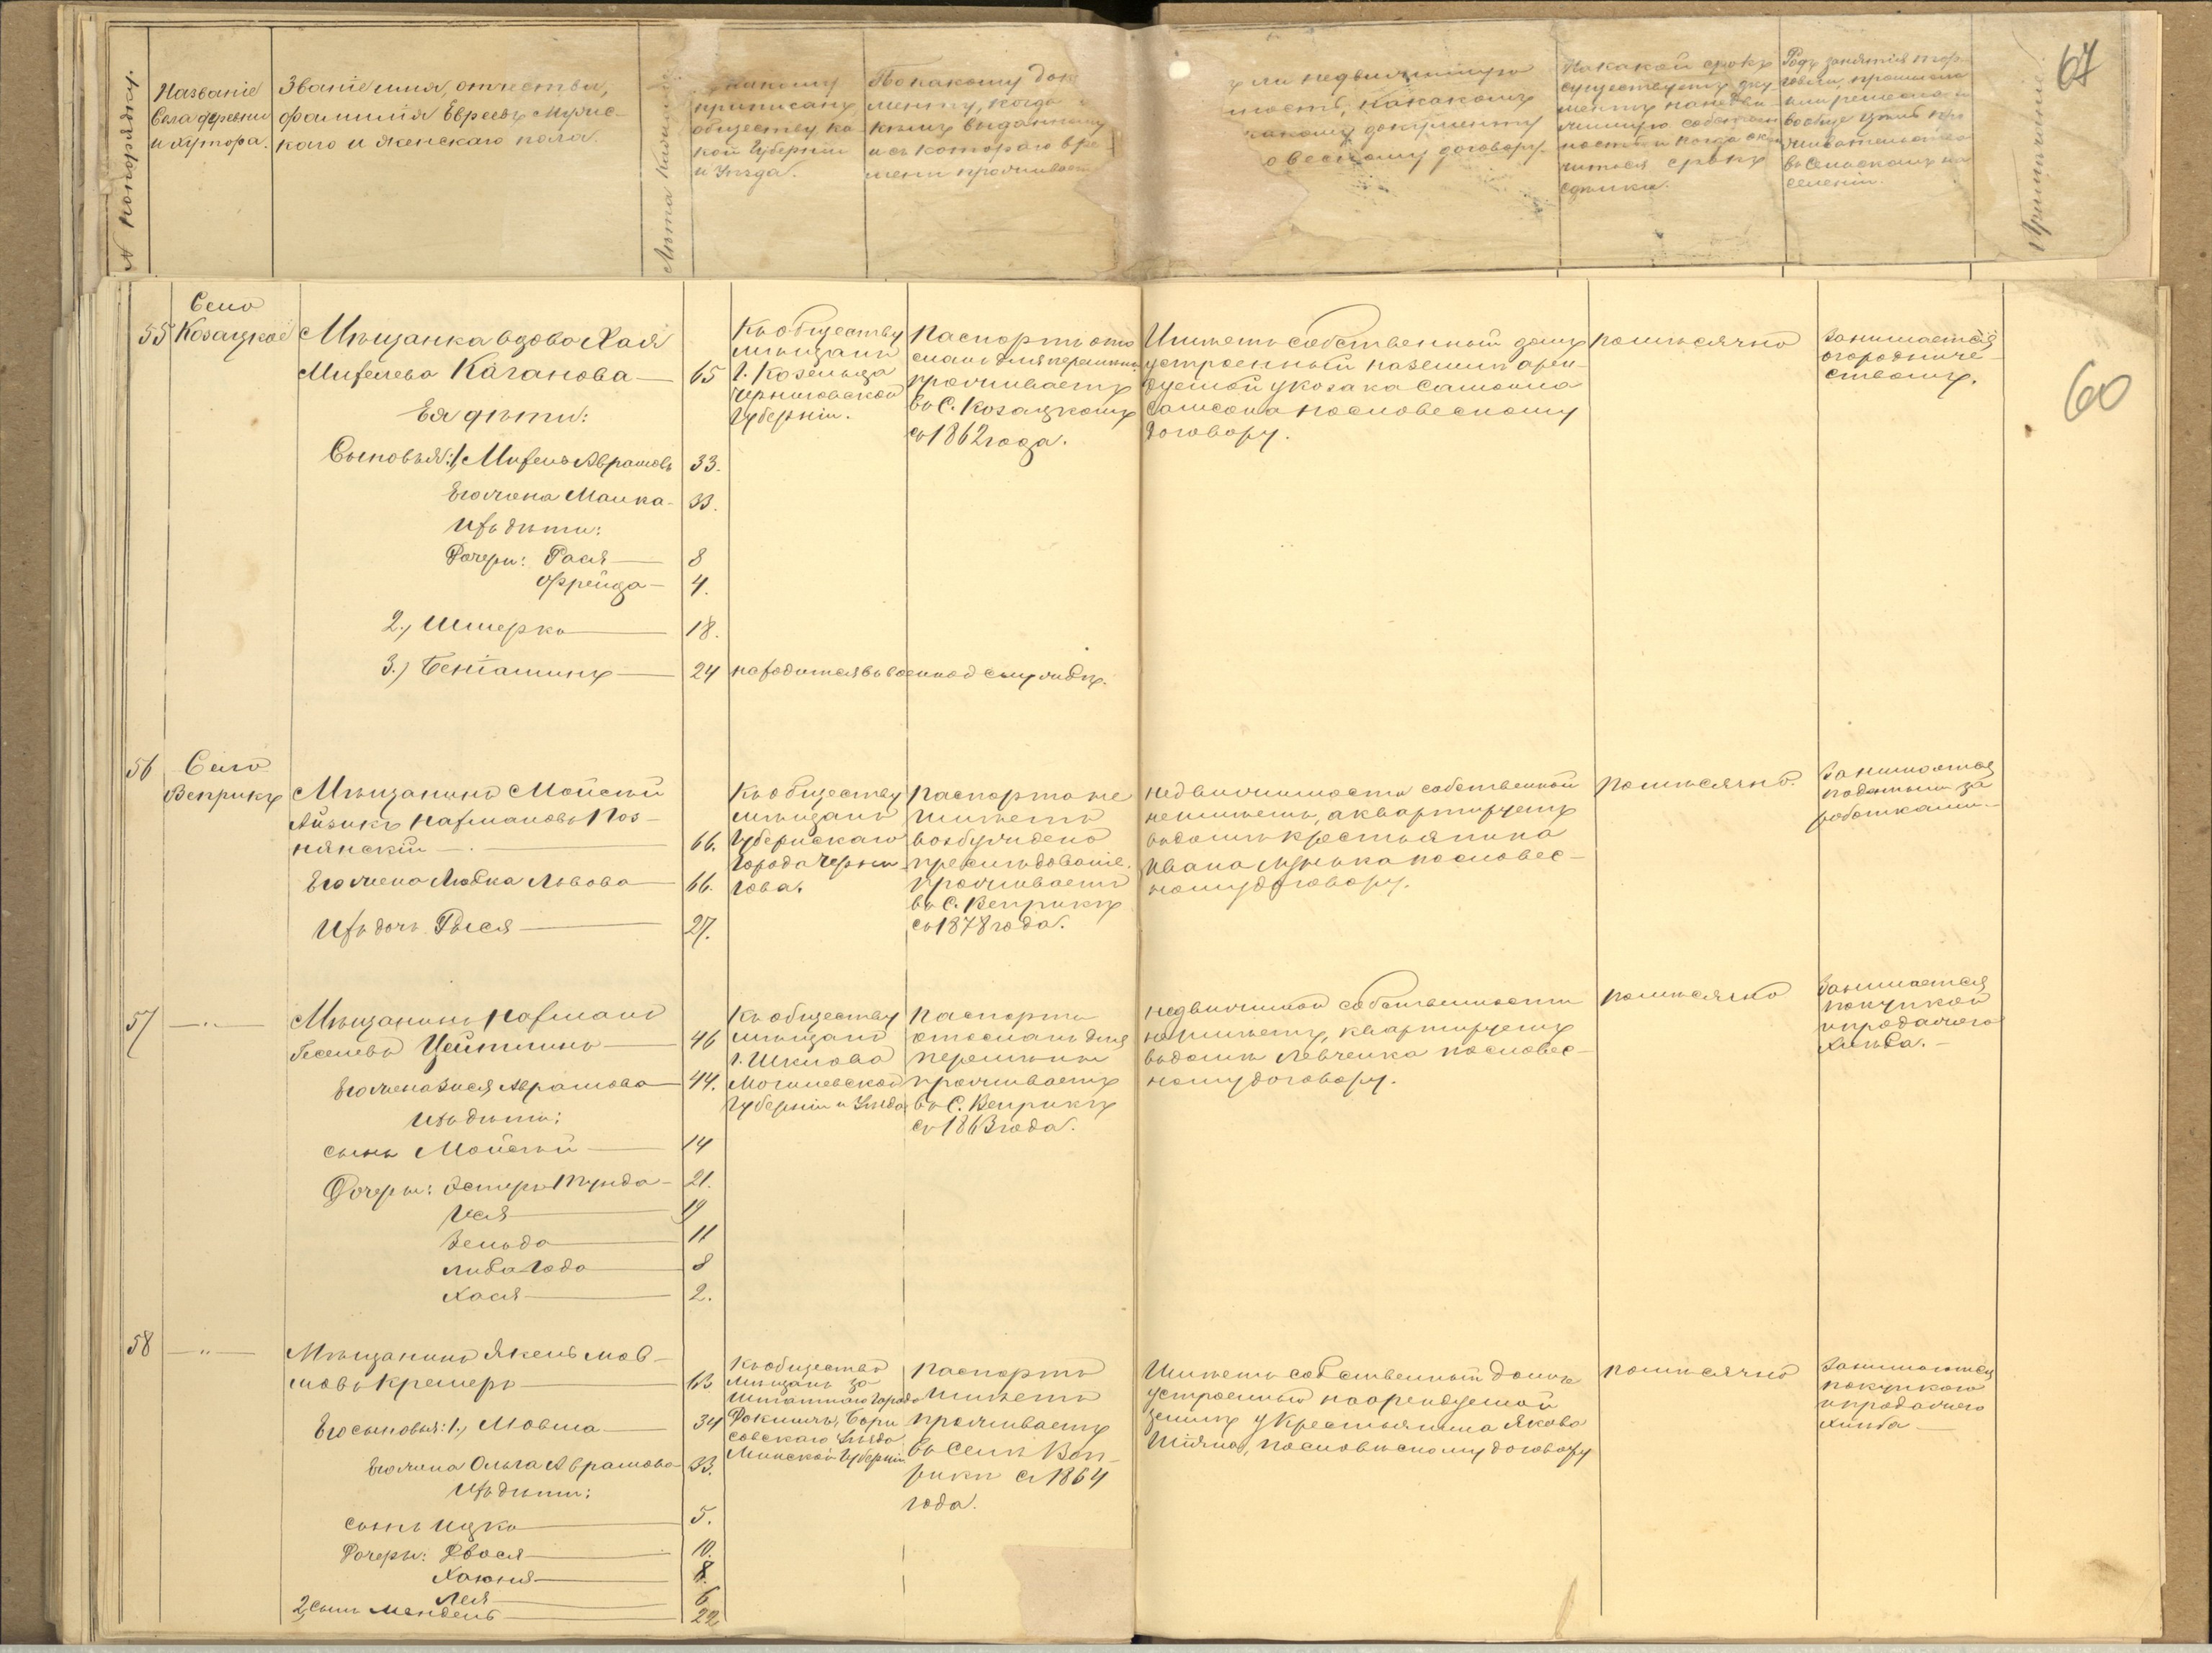 67
60
№ по порядку.
Названіе
села деревни
и хутора.
Званіе имя, отчество,
фамилія Евреевъ Мужес-
каго и женскаго пола.
Лѣта
приписанъ
обществу, ка
кой Губерніи
и Уѣзда.
По какому док
менту, когда
кѣмъ выданному
и съ котораго вре-
мени проживаетъ
ли недвижимую
ность, по какому
документу
словесному договору.
На какой срокъ
существуетъ доку
ментъ на недви-
жимую собствен
ность и когда окон
читься срокъ
Родъ занятія тор-
говли, промысла
или ремесла и
вообще
въ Сельскомъ на
селеніи.
Примѣчаніе.
55
Село
Козацкое
Мѣщанка вдова Хая
Михелева Каганова — 65
Ея дѣти:
Сыновья: 1, Михель Абрамовъ 33.
Его жена Малка - 33.
Ихъ дѣти:
Дочери: Рася — 8
Фрейда — 4.
2., Шмерко — 18.
3.) Беніаминъ — 24 находится въ военной службѣ.
Къ обществу
мѣщанъ
г. Козельца
Черниговской
Губерніи.
Паспортъ ото
сланъ для перемѣны
проживаетъ
въ С. Козацкомъ
съ 1862 года.
Имѣетъ собственный домъ
устроенный на земли арен-
дуемой у козака Самойла
Самсона по словесному
договору.
помѣсячно
Занимается
огородниче-
ствомъ.
56
Село
Веприкъ
Мѣщанинъ Мойсей
Айзикъ Нахмановъ Поз-
нянскій — 66.
Его жена Любка Львова — 66.
Ихъ дочь Рыся — 27.
Къ обществу
мѣщанъ
Губернскаго
Города Черни
гова.
Паспорта не
имѣетъ
возбуждено
преслѣдованіе.
проживаетъ
въ С. Веприкъ
съ 1878 года.
Недвижимости собственной
не имѣетъ, а квартируетъ
въ домѣ крестьянина
Ивана по словес-
ному договору.
помѣсячно.
Занимается
поденными за
работками.
57
— " —
Мѣщанинъ Нахманъ
Геселевъ Цейтлинъ — 46
Его жена Зися Абрамова — 44.
Ихъ дѣти:
сынъ Мойсей — 14
Дочери: Эстеръ Трунда - 21.
Ися — 19
Зельда — 11
Либа Года — 8
Хася — 2.
Къ обществу
мѣщанъ
г. Шклова
Могилевской
Губерніи и Уѣзда
Паспортъ
отосланъ для
перемѣны
проживаетъ
въ С. Веприкъ
съ 1863 года.
недвижимой собственности
не имѣетъ, квартируетъ
въ домѣ Левченка по словес-
ному договору.
помѣсячно
Занимается
покупкой
и продажею
хлѣба. -
58
— " —
Мѣщанинъ Якель Мов-
шовъ Кремеръ — 63.
Его сыновья: 1., Мовша — 34
Его жена Ольга Абрамова 33.
Ихъ дѣти:
сынъ Ицко — 5.
Дочери: Двася — 10.
Хаюня — 8.
Лея — 6
2, сынъ Мендель — 22
Къ обществу
мѣщанъ за
штатнаго города
Докшицъ, Бори
совскаго Уѣзда
Минской Губерніи.
Паспортъ
имѣетъ
проживаетъ
въ Селѣ Веп-
рикъ съ 1864
года.
Имѣетъ собственный домъ
устроенный на арендуемой
земли у Крестьянина Якова
по словесному договору
помѣсячно
Занимается
покупкою
и продажею
хлѣба —